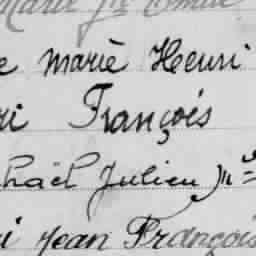 Marie
e marie Henri
ri François
haël Julien
i Jean François